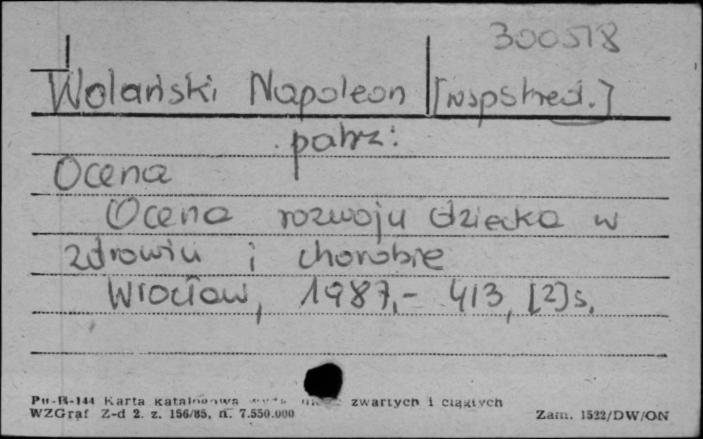 300518
Wolański Napoleon [współred.]
patrz:
Ocena
Ocena rozwoju dziecka w
zdrowiu i chorobie
Wrocław, 1987,- 413, [2]s.
Pu-B-144 Karta katalogowa zwartych i ciągłych
WZGraf Z-d 2. z. 156/85, n. 7.550.000 Zam. 1522/DW/ON